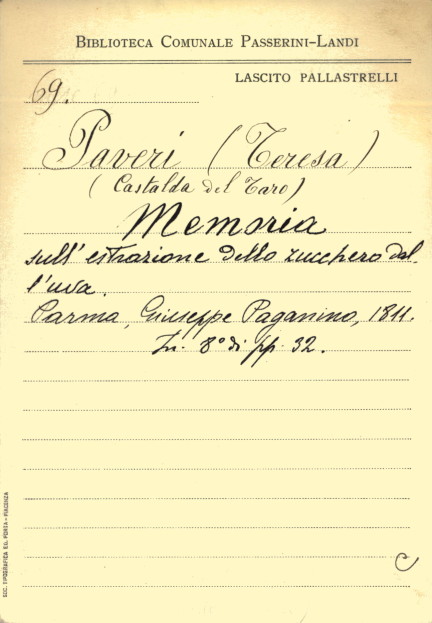 BIBLIOTECA COMUNALE PASSERINI-LANDI
LASCITO PALLASTRELLI
69.
Paveri (Teresa)
(Castalda del Taro)
Memoria
sull' estrazione dello zucchero dal
l'uva.
Parma, Giuseppe Paganino, 1811.
In. 8º di pp. 32.
C
SOC. TIPOGRAFICA ED. PORTA - PIACENZA